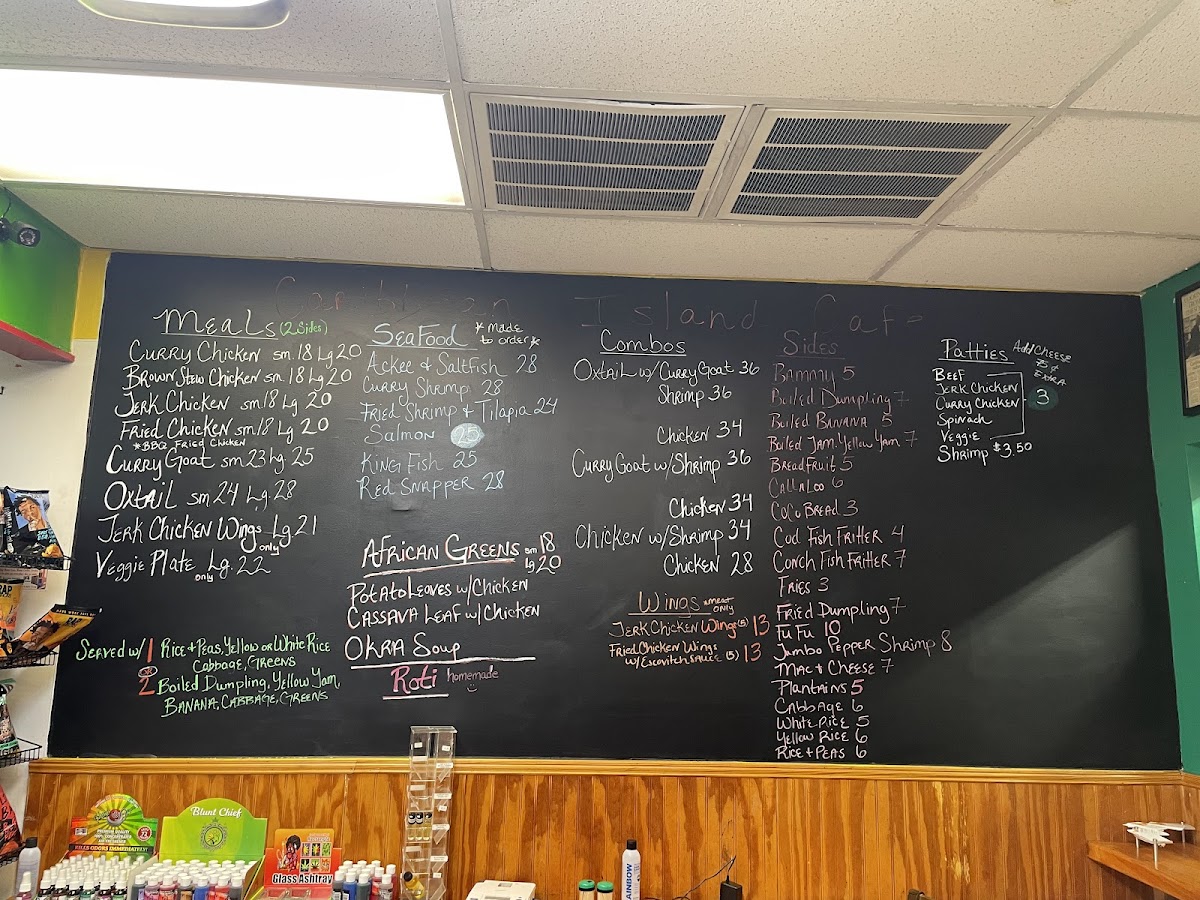 Caribbean Island Cafe
Meals (2 Sides)
Curry Chicken sm. 18 Lg 20
Brown Stew Chicken sm. 18 Lg 20
Jerk Chicken sm 18 Lg 20
Fried Chicken sm 18 Lg 20
*BBQ Fried Chicken
Curry Goat sm 23 Lg 25
Oxtail sm. 24 Lg. 28
Jerk Chicken Wings Lg 21
only
Veggie Plate Lg. 22
only
Served w/ 1 Rice + Peas, Yellow or White Rice
Cabbage, Greens
or
2 Boiled Dumpling, Yellow Yam,
Banana, Cabbage, Greens
SeaFood *made to order*
Ackee & Saltfish 28
Curry Shrimp 28
Fried Shrimp + Tilapia 24
Salmon 25
King Fish 25
Red Snapper 28
African Greens sm 18
Lg 20
Potato Leaves w/ Chicken
Cassava Leaf w/ Chicken
Okra Soup
Roti homemade
Combos
Oxtail w/ Curry Goat 36
Shrimp 36
Chicken 34
Curry Goat w/ Shrimp 36
Chicken 34
Chicken w/ Shrimp 34
Chicken 28
Wings *meat only
Jerk Chicken Wings (5) 13
Fried Chicken Wings
w/ Escovitch Sauce (5) 13
Sides
Bammy 5
Boiled Dumpling 7
Boiled Banana 5
Boiled Yam, Yellow Yam 7
Breadfruit 5
Callaloo 6
CoCo Bread 3
Cod Fish Fritter 4
Conch Fish Fritter 7
Fries 3
Fried Dumpling 7
Fu Fu 10
Jumbo Pepper Shrimp 8
Mac + Cheese 7
Plantains 5
Cabbage 6
White Rice 5
Yellow Rice 6
Rice + Peas 6
Patties Add Cheese
75¢
Extra
Beef
Jerk Chicken
Curry Chicken 3
Spinach
Veggie
Shrimp $3.50
KILLS ODORS IMMEDIATELY
Blunt Chief
Glass Ashtray